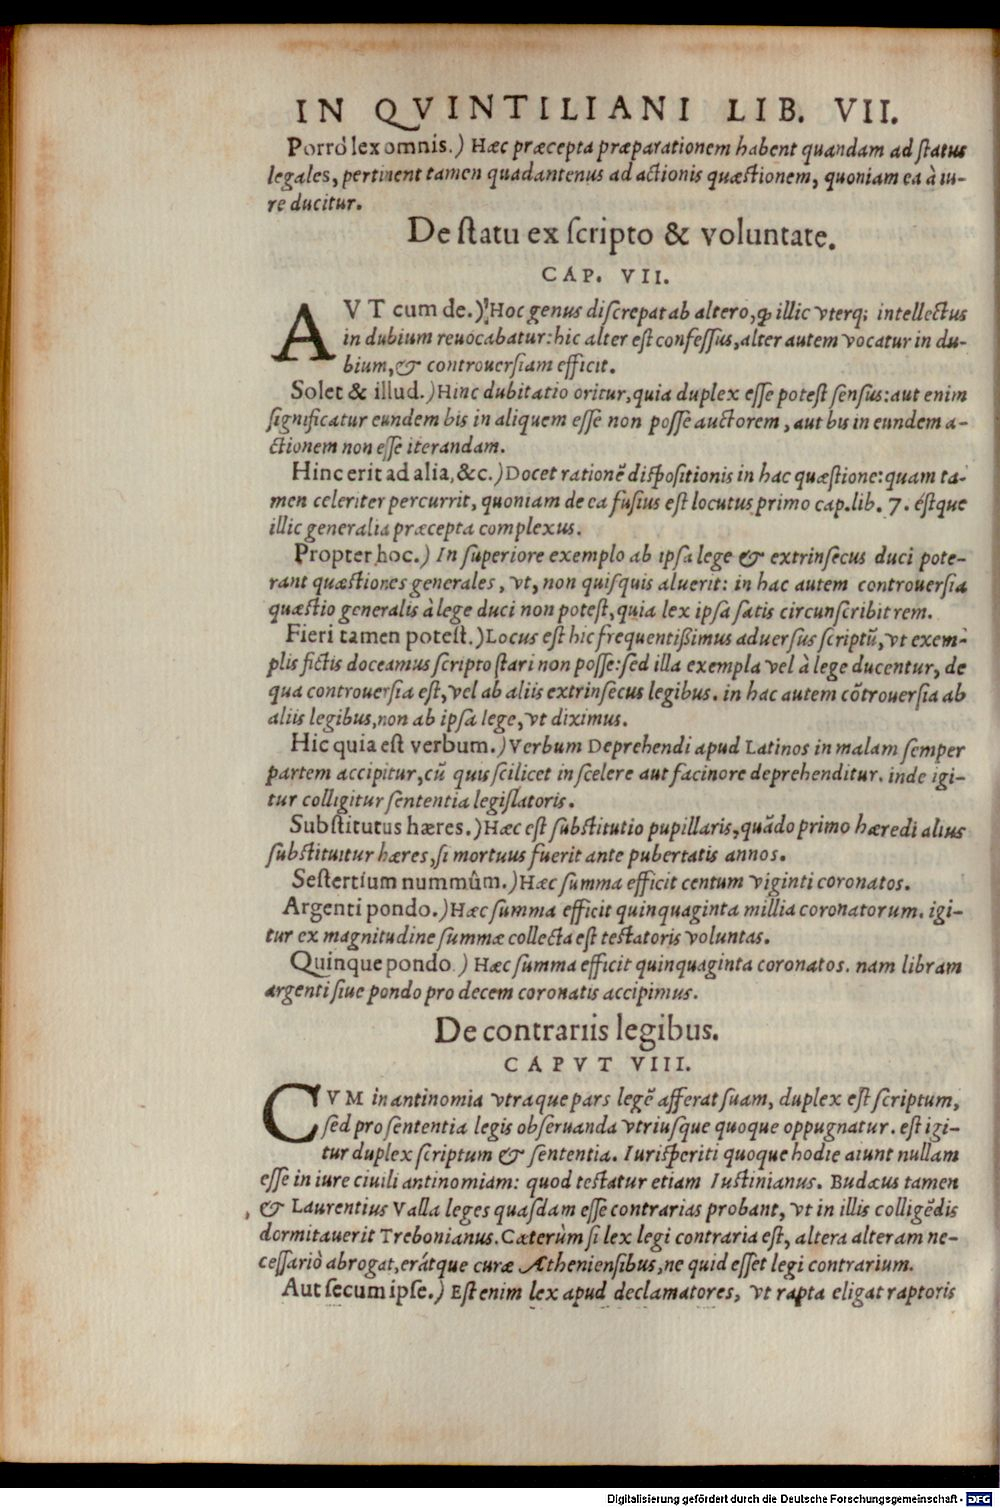 IN QVINTILIANI LIB. VII.
Porrò lex omnis.) Hæc præcepta præparationem habent quandam ad status
legales, pertinent tamen quadantenus ad actionis quæstionem, quoniam ea à iu-
re ducitur.
De statu ex scripto & voluntate.
CAP. VII.
AVT cum de.) Hoc genus discrepat ab altero, ꝙ illic vterq; intellectus
in dubium reuocabatur: hic alter est confessus, alter autem vocatur in du-
bium, & controuersiam efficit.
Solet & illud.) Hinc dubitatio oritur, quia duplex esse potest sensus: aut enim
significatur eundem bis in aliquem esse non posse auctorem, aut bis in eundem a-
ctionem non esse iterandam.
Hinc erit ad alia, &c.) Docet rationẽ dispositionis in hac quæstione: quam ta-
men celeriter percurrit, quoniam de ea fusius est locutus primo cap. lib. 7. éstque
illic generalia præcepta complexus.
Propter hoc.) In superiore exemplo ab ipsa lege & extrinsecus duci pote-
rant quæstiones generales, vt, non quisquis aluerit: in hac autem controuersia
quæstio generalis à lege duci non potest, quia lex ipsa satis circunscribit rem.
Fieri tamen potest.) Locus est hic frequentißimus aduersus scriptũ, vt exem-
plis fictis doceamus scripto stari non posse: sed illa exempla vel à lege ducentur, de
qua controuersia est, vel ab aliis extrinsecus legibus. in hac autem cõtrouersia ab
aliis legibus, non ab ipsa lege, vt diximus.
Hic quia est verbum.) Verbum Deprehendi apud Latinos in malam semper
partem accipitur, cũ quis scilicet in scelere aut facinore deprehenditur. inde igi-
tur colligitur sententia legislatoris.
Substitutus hæres.) Hæc est substitutio pupillaris, quãdo primo hæredi alius
substituitur hæres, si mortuus fuerit ante pubertatis annos.
Sestertium nummûm.) Hæc summa efficit centum viginti coronatos.
Argenti pondo.) Hæc summa efficit quinquaginta millia coronatorum. igi-
tur ex magnitudine summæ collecta est testatoris voluntas.
Quinque pondo.) Hæc summa efficit quinquaginta coronatos. nam libram
argenti siue pondo pro decem coronatis accipimus.
De contrariis legibus.
CAPVT VIII.
CVM in antinomia vtraque pars legẽ afferat suam, duplex est scriptum,
sed pro sententia legis obseruanda vtriusque quoque oppugnatur. est igi-
tur duplex scriptum & sententia. Iurisperiti quoque hodie aiunt nullam
esse in iure ciuili antinomiam: quod testatur etiam Iustinianus. Budæus tamen
& Laurentius Valla leges quasdam esse contrarias probant, vt in illis colligẽdis
dormitauerit Trebonianus. Cæterùm si lex legi contraria est, altera alteram ne-
cessariò abrogat, erátque curæ Atheniensibus, ne quid esset legi contrarium.
Aut secum ipse.) Est enim lex apud declamatores, vt rapta eligat raptoris
Digitalisierung gefördert durch die Deutsche Forschungsgemeinschaft - DFG